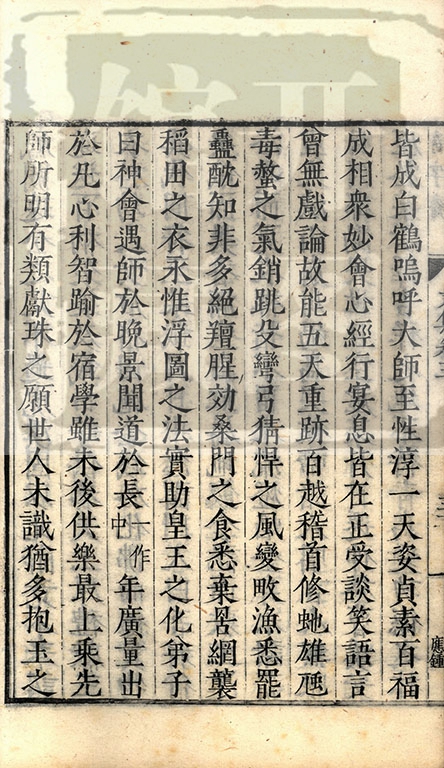 皆成白鶴嗚呼大師至性淳一天姿貞素百福
成相衆妙會心經行宴息皆在正受談笑語言
曾無戲論故能五天重跡百越稽首修虵雄虺
毒螫之氣銷跳殳彎弓猜悍之風變畋漁悉罷
蠱酖知非多絕羶腥効桑門之食悉棄罟網襲
稻田之衣永惟浮圖之法實助皇王之化弟子
曰神會遇師於晚景聞道於長一作中年廣量出
於凡心利智踰於宿學雖未後供樂最上乘先
師所明有類獻珠之願世人未識猶多抱玉之
應鍾